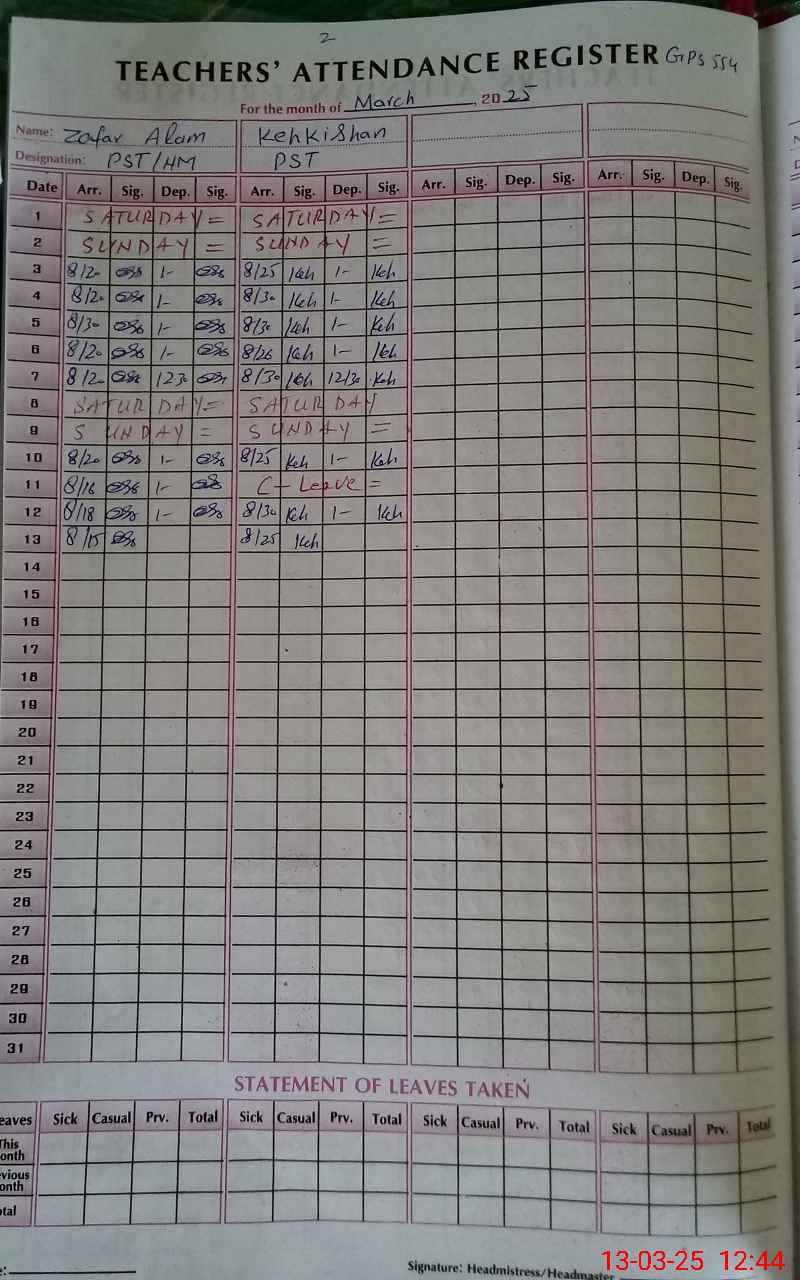 2
TEACHERS' ATTENDANCE REGISTER GPS 554
For the month of March, 2025
Name: Zafar Alam Kehkishan
Designation: PST/HM PST
Date Arr. Sig. Dep. Sig. Arr. Sig. Dep. Sig. Arr. Sig. Dep. Sig. Arr. Sig. Dep. Sig.
1 SATURDAY = SATURDAY =
2 SUNDAY = SUNDAY =
3 8/20 1- 8/25 Keh 1- Keh
4 8/20 1- 8/30 Keh 1- Keh
5 8/30 1- 8/30 Keh 1- Keh
6 8/20 1- 8/26 Keh 1- Keh
7 8/20 1230 8/30 Keh 12/30 Keh
8 SATURDAY = SATURDAY
9 SUNDAY = SUNDAY =
10 8/20 1- 8/25 Keh 1- Keh
11 8/16 1- C-Leave =
12 8/18 1- 8/30 Keh 1- Keh
13 8/15 8/25 Keh
14
15
16
17
18
19
20
21
22
23
24
25
26
27
28
29
30
31
STATEMENT OF LEAVES TAKEN
eaves Sick Casual Prv. Total Sick Casual Prv. Total Sick Casual Prv. Total Sick Casual Prv. Total
This
onth
vious
onth
tal
e: Signature: Headmistress/Headmaster
13-03-25 12:44